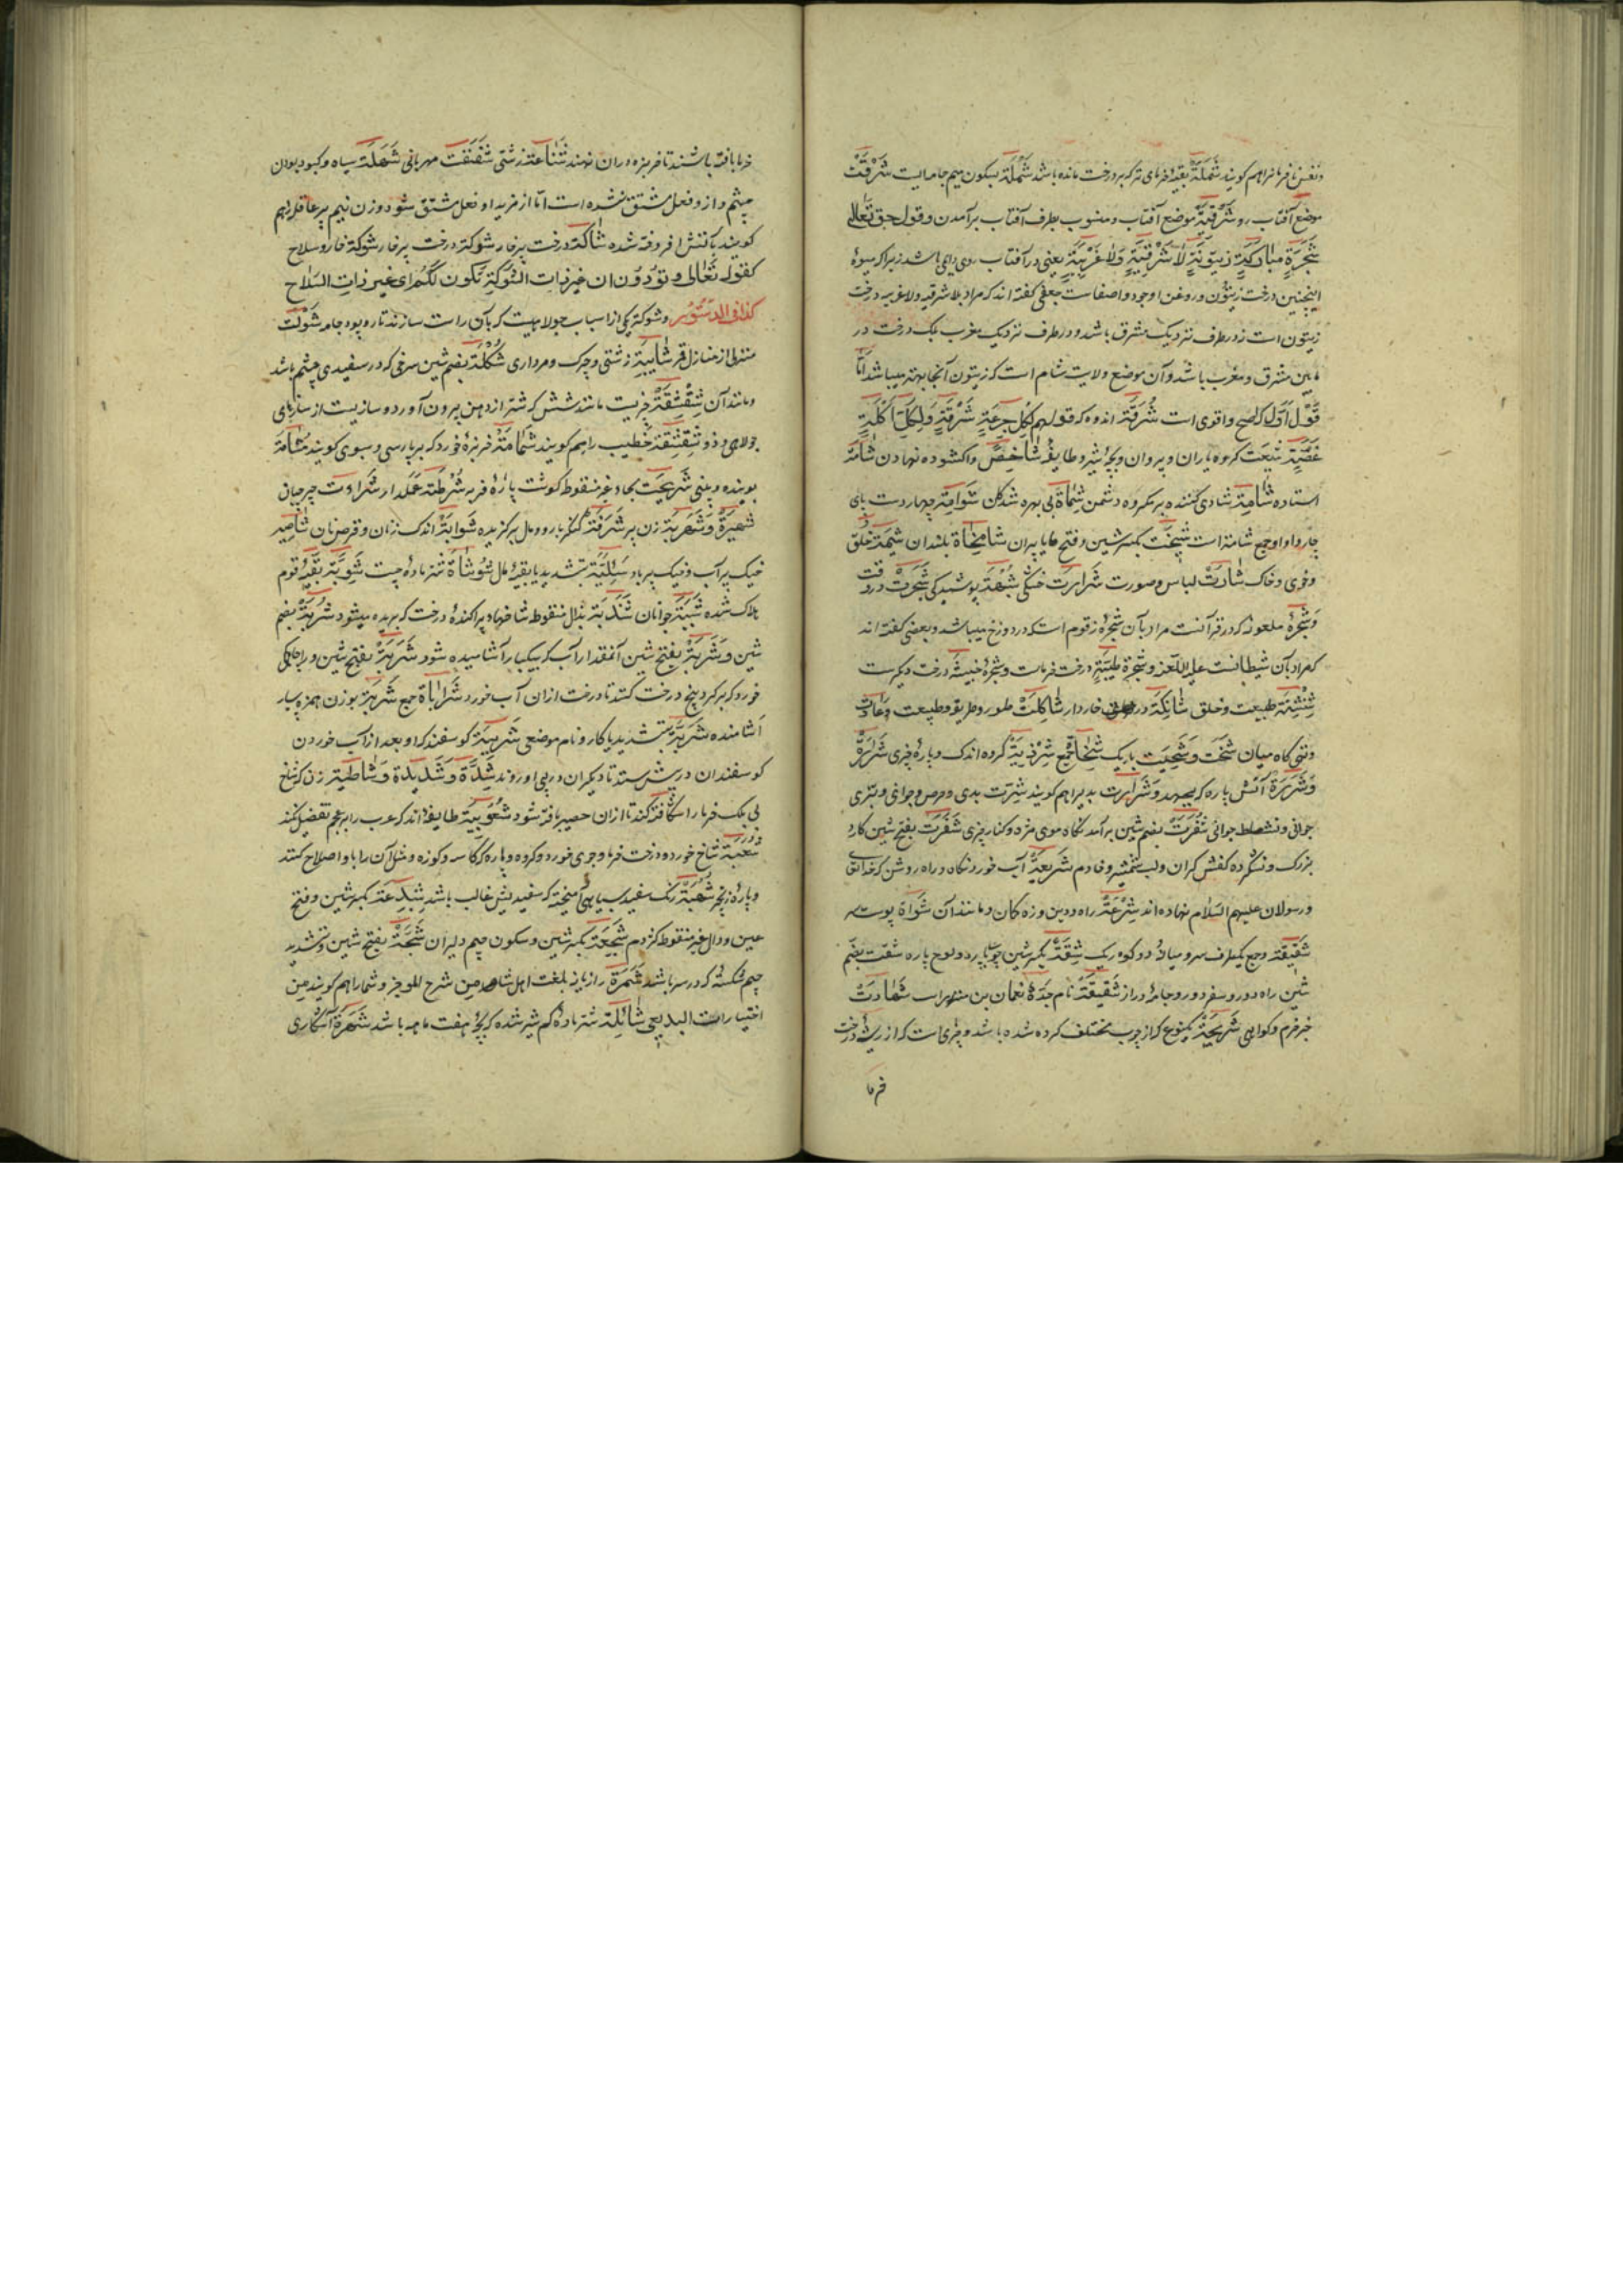 و نفس نافرمانرا هم کویند شَمَلَةٌ بقیهٔ خرمای تر که بر درخت مانده باشد شَمْلَة بسکون میم جامه ایست شَرْقَتْ
موضع آفتاب رو شَرْقِیَّةٌ موضع آفتاب و منسوب بطرف آفتاب برآمدن و قول حق تَعَالی
شَجَرَةٍ مُبَارَكَةٍ زَیْتُونَةٍ لَا شَرْقِیَّةٍ وَلَا غَرْبِیَّةٍ یعنی در آفتاب روی دایمی باشد زیرا که میوهٔ
اینچنین درخت زیتون و روغن او جود و اصفاست بعضی کفته اند که مراد بلا شرقیه ولا غربیه درخت
زیتون است نه در طرف نزدیک مشرق باشد و نه در طرف نزدیک مغرب بلک درخت در
مابین مشرق و مغرب باشد و آن موضع ولایت شام است که زیتون آنجا بهتر میباشد امّا
قول اَوّل که اصح و اقوی است شُرْقَةٌ اندوه که قولهم لِکُلِّ جُرْعَةٍ شَرْقَةٍ وَلِکُلِّ اَکْلَةٍ
غُصَّةٍ شیعَت کروه یاران و پیروان و بچهٔ شیر و طایفهٔ شاخِصَة واکشوده نهادن شامَة
استاده شامِتَة شادی کننده بر مکروه دشمن شِماتَة بی بهره شدکان شَوَامِتْ چهار دست پای
چاروا و او جمع شامتة است شِیَخَت بکسر شین و فتح یا پیران شامِخَاة بلندان شیمَة خلق
و خوی و خاک شارَتْ لباس و صورت شَرارَت خشکی شُبْهَة پوشیدکی شَجَرَتْ درخت
و شَجَرَهٔ ملعونه که در قرآنست مراد بآن شَجَرهٔ زقوم است که در دوزخ میباشد و بعضی کفته اند
که مراد بآن شیطانست علیه اللعنه و شجرة طَیِّبَةٍ درخت خرماست و شجرهٔ خبیثه درخت دیکرست
شِنْشِنَة طبیعت و خلق شائِکَة درخت خاردار شاکِلَتْ طور و طریقه و طبیعت و عادت
و تنی کاه میان شَخْت و شَخِیت باریک شِخَات جمع شِرْذِمَةٌ کروه اندک و پارهٔ چیزی شَرارَةٌ
وَ شَرَرَةٌ آتش پاره که بجهد و شَرارَت بدیرا هم کویند شِرَّت بدی و حرص و جوانی و تیزی
جوانی و نشاط جوانی شُفْرَتْ بضم شین برآمد نکاه موی مژه و کنار چیزی شَفْرَتْ بفتح شین کارد
بزرک و نشکرده کفش کران و لب شمشیر و خادم شَرِیعَة آب خورد نکاه و راه روشن که خدایتعالی
و رسولان علیهم السلام نهاده اند شِرْعَةٌ راه و دین و زه کمان و مانند آن شَوَاة پوست سر
شَقِیقَة وجع یکطرف سر و میانهٔ دو کوه ریک شِقَّةٌ بکسر شین چوب پاره و لوح پاره شُقَّت بضم
شین راه دور و سفر دور و جامهٔ دراز شَقِیقَة نام جدّهٔ نعمان بن منذر است شَهَادَتْ
خبر جزم و کواهی شَرِیجَةٌ کمینوع که از چوب مختلف کرده شده باشد و چیزی است که از ریشهٔ درخت
خرما
خرما بافته باشند تا خربزه دران نهند شَناعَة زشتی شَفَقَتْ مهربانی شَهْلَة سیاه و کبود بودن
چشم و ازو فعل مشتق نشده است امّا از مزید او فعل مشتق شود و زن نیم پیر عاقله را هم
کویند بآتش افروخته شده شاکَة درخت پرخار شَوْکَة درخت پرخار شَوْکَة خار و سلاح
کقوله تَعَالی وَ تَوَدُّونَ اَنَّ غَیْرَ ذَاتِ الشَّوْکَةِ تَکُونُ لَکُمْ ای غیر ذات السّلاح
کذا فی الدستور و شوکة یکی از اسباب جولاهیست که بآن راست سازند تار و پود جامه شَوْلَت
منزلی از منازل قمر شایِبَة زشتی و چرک و مرداری شُکْلَة بضم شین سرخی که در سفیدی چشم باشد
و مانند آن شِقْشِقَةٌ چیزیست مانند شش که شتر از دهن بیرون آورد و سازیست از سازهای
جولاهی و ذو شِقْشِقَة خطیب را هم کویند شَمَّامَةٌ خربزهٔ خورد که بپارسی دستبوی کویند شَامَّة
بوینده و بینی شَرِیحَت بحاء غیر منقوط کوشت پارهٔ فربه شُرْطَة عملدار شَرَادَت
شَهِیرَةٌ وَ شَهْرَبَة زن پیر شُرْفَةٌ کنکره بارو و مال برکزیده شَوَایَة اندک زنان و قرص نان شاصِیَة
خیک پر آب و خیک پر باد شَلِیَّة بتشدید یا بقیهٔ مال شَوْشَاة شتر مادهٔ چست شَوِیَّة بقیهٔ قوم
هلاک شده شَبَبَة جوانان شَذَبَة بذال منقوط شاخهاء پراکندهٔ درخت که بریده میشود شُرْبَةٌ بضم
شین و شَرْبَةٌ بفتح شین آنمقدار آب که بیکبار آشامیده شود شَرَبَةٌ بفتح شین و را جایکی
خورد که بر کرد بیخ درخت کنند تا درخت ازان آب خورد شَرَبَاة جمع شُرَبَة بوزن همزه بسیار
آشامنده شَرَبَّة بتشدید با کار و نام موضعی شَرِیبَة کوسفند که او بعد از آب خوردن
کوسفندان در پیش رسد تا دیکران در پی او روند شَدَّة وَ شَدِیدَة وَ شاطِبَة زن که شاخ
بی برک خرما را شکافته کند تا ازان حصیر بافته شود شُعُوبِیَّة طایفهٔ اند که عرب را بر عجم تفضیل کنند
شُعْبَة شاخ خورد و درخت خرما و جوی خورد و کروه و پاره که کاسه و کوزه و مثل آن را باو اصلاح کنند
و پارهٔ زنجیر شُهْبَةٌ رنک سفید بسیاهی آمیخته که سفیدیش غالب باشد شِبْدِعَة بکسر شین و فتح
عین و دال غیر منقوط کژدم شِجْعَة بکسر شین و سکون جیم دلیران شَجَّةٌ بفتح شین و تشدید
جیم شکستهٔ که در سر باشد شَمْرَة رازیانه بلغت اهل شام من شرح الموجز و شمار هم کویند من
اختیارات البدیعی شائِلَة شتر مادهٔ کم شیر شده که بچهٔ هفت ماهه باشد شُهْرَة آشکاری